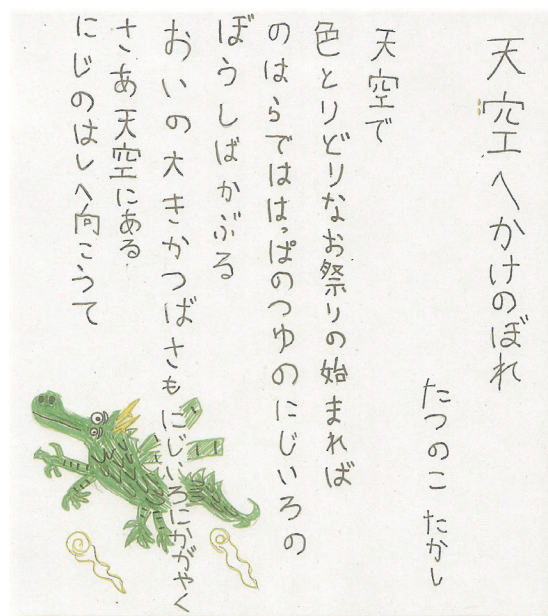 天空へかけのぼれ
たつのこ たかし
天空で
色とりどりなお祭りの始まれば
のはらでははっぱのつゆのにじいろの
ぼうしばかぶる
おいの大きかつばさもにじいろにかがやく
さあ天空にある
にじのはしへ向こうて